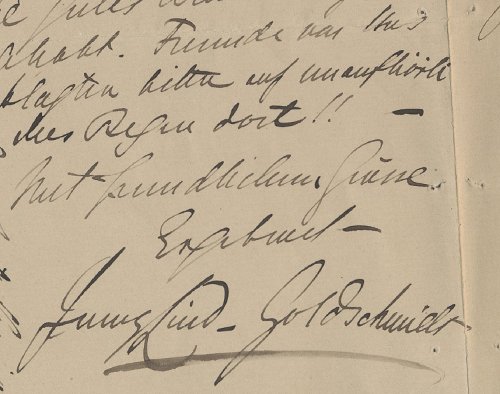 gehabt. Freunde von uns
klagten bitter auf unaufhörli
ches Regen dort!! —
Mit freundlichem Grüsse.
Ergebenst —
Jenny Lind-Goldschmidt.